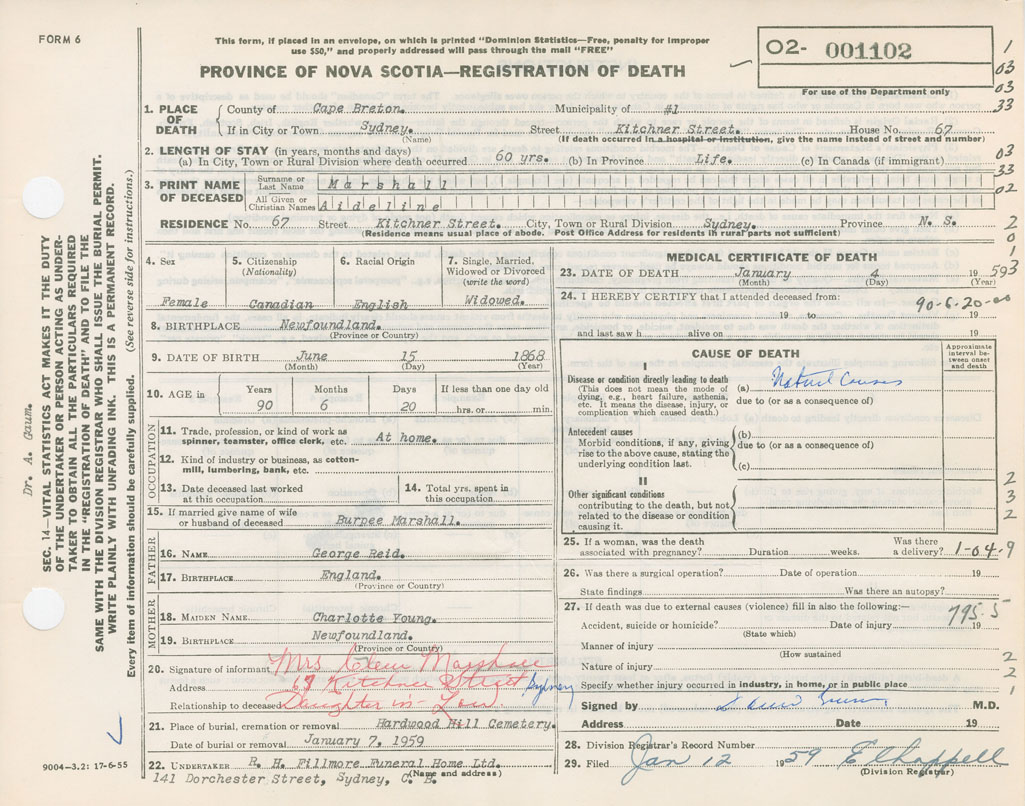 FORM 6
This form, if placed in an envelope, on which is printed "Dominion Statistics—Free, penalty for improper
use $50," and properly addressed will pass through the mail "FREE"
PROVINCE OF NOVA SCOTIA—REGISTRATION OF DEATH
O2- 001102
For use of the Department only
1
03
03
33
03
33
02
2
0
1
3
1. PLACE OF DEATH
County of Cape Breton. Municipality of #1
If in City or Town Sydney. Street Kitchner Street. House No. 67
(Name) (If death occurred in a hospital or institution, give the name instead of street and number)
2. LENGTH OF STAY (in years, months and days)
(a) In City, Town or Rural Division where death occurred 60 yrs. (b) In Province Life. (c) In Canada (if immigrant)
3. PRINT NAME OF DECEASED
Surname or Last Name Marshall
All Given or Christian Names Aideline
RESIDENCE No. 67 Street Kitchner Street. City, Town or Rural Division Sydney. Province N. S.
(Residence means usual place of abode. Post Office Address for residents in rural parts not sufficient)
4. Sex
Female
5. Citizenship
(Nationality)
Canadian
6. Racial Origin
English
7. Single, Married,
Widowed or Divorced
(write the word)
Widowed.
8. BIRTHPLACE Newfoundland.
(Province or Country)
9. DATE OF BIRTH June 15 1868
(Month) (Day) (Year)
10. AGE in
Years Months Days If less than one day old
90 6 20 hrs. or min.
OCCUPATION
11. Trade, profession, or kind of work as
spinner, teamster, office clerk, etc. At home.
12. Kind of industry or business, as cotton-
mill, lumbering, bank, etc.
13. Date deceased last worked
at this occupation
14. Total yrs. spent in
this occupation
15. If married give name of wife
or husband of deceased Burpee Marshall.
FATHER
16. NAME George Reid.
17. BIRTHPLACE England.
(Province or Country)
MOTHER
18. MAIDEN NAME Charlotte Young.
19. BIRTHPLACE Newfoundland.
(Province or Country)
20. Signature of informant Mrs Clem Marshall
Address 67 Kitchner Street Sydney
Relationship to deceased Daughter in-Law.
21. Place of burial, cremation or removal Hardwood Hill Cemetery.
Date of burial or removal January 7, 1959
22. UNDERTAKER R. H. Fillmore Funeral Home Ltd.
(Name and address)
141 Dorchester Street, Sydney, C. B.
MEDICAL CERTIFICATE OF DEATH
23. DATE OF DEATH January 4 1959
(Month) (Day) (Year)
24. I HEREBY CERTIFY that I attended deceased from:
90-6-20-00
19 to 19
and last saw h alive on 19
CAUSE OF DEATH
Approximate
interval be-
tween onset
and death
I
Disease or condition directly leading to death
(This does not mean the mode of
dying, e.g., heart failure, asthenia,
etc. It means the disease, injury, or
complication which caused death.)
(a) Natural Causes
due to (or as a consequence of)
Antecedent causes
Morbid conditions, if any, giving
rise to the above cause, stating the
underlying condition last.
(b)
due to (or as a consequence of)
(c)
II
Other significant conditions
contributing to the death, but not
related to the disease or condition
causing it.
2
3
2
25. If a woman, was the death
associated with pregnancy? Duration weeks. Was there
a delivery? 1-04-9
26. Was there a surgical operation? Date of operation 19
State findings Was there an autopsy?
27. If death was due to external causes (violence) fill in also the following:—
795.5
Accident, suicide or homicide? Date of injury 19
(State which)
Manner of injury
(How sustained
Nature of injury
Specify whether injury occurred in industry, in home, or in public place
2
2
1
Signed by M.D.
Address Date 19
28. Division Registrar's Record Number
29. Filed Jan 12 1959 E Chappell
(Division Registrar)
SEC. 14—VITAL STATISTICS ACT MAKES IT THE DUTY
OF THE UNDERTAKER OR PERSON ACTING AS UNDER-
TAKER TO OBTAIN ALL THE PARTICULARS REQUIRED
IN THE "REGISTRATION OF DEATH" AND TO FILE THE
SAME WITH THE DIVISION REGISTRAR WHO SHALL ISSUE THE BURIAL PERMIT.
WRITE PLAINLY WITH UNFADING INK. THIS IS A PERMANENT RECORD.
Every item of information should be carefully supplied. (See reverse side for instructions.)
Dr. A. Gaum.
9004-3.2: 17-6-55